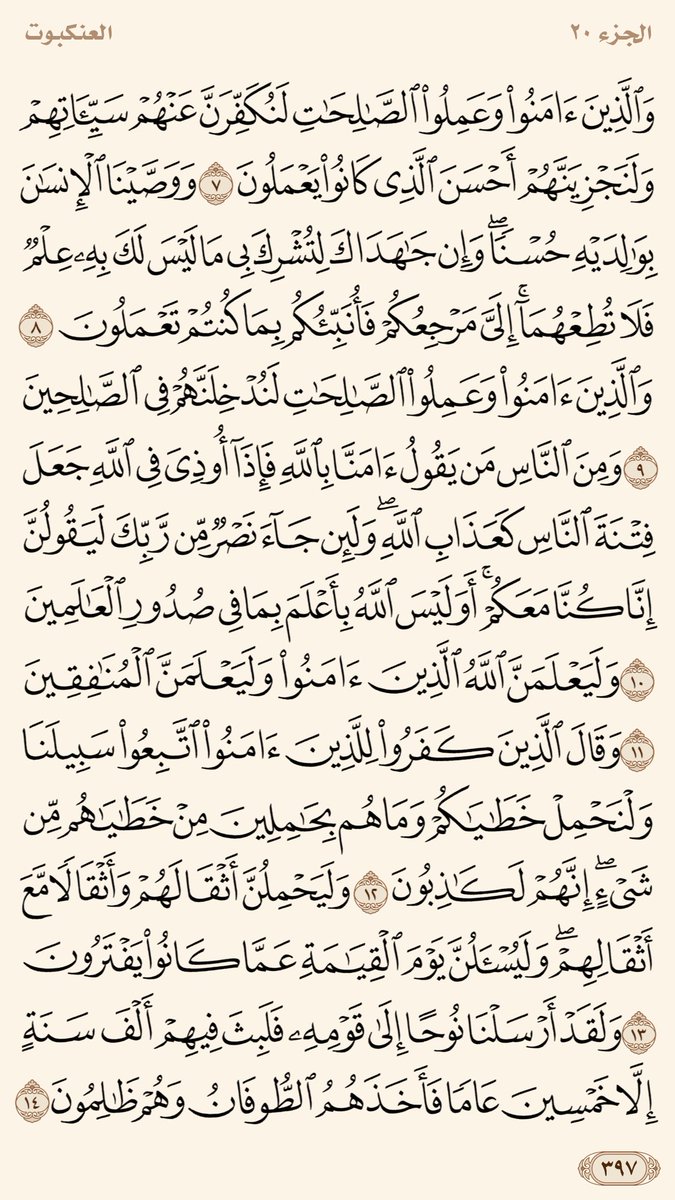 الجزء ٢٠
العنكبوت
وَٱلَّذِينَ ءَامَنُوا۟ وَعَمِلُوا۟ ٱلصَّٰلِحَٰتِ لَنُكَفِّرَنَّ عَنْهُمْ سَيِّـَٔاتِهِمْ
وَلَنَجْزِيَنَّهُمْ أَحْسَنَ ٱلَّذِى كَانُوا۟ يَعْمَلُونَ ٧ وَوَصَّيْنَا ٱلْإِنسَٰنَ
بِوَٰلِدَيْهِ حُسْنًا ۖ وَإِن جَٰهَدَاكَ لِتُشْرِكَ بِى مَا لَيْسَ لَكَ بِهِۦ عِلْمٌ
فَلَا تُطِعْهُمَآ ۚ إِلَىَّ مَرْجِعُكُمْ فَأُنَبِّئُكُم بِمَا كُنتُمْ تَعْمَلُونَ ٨
وَٱلَّذِينَ ءَامَنُوا۟ وَعَمِلُوا۟ ٱلصَّٰلِحَٰتِ لَنُدْخِلَنَّهُمْ فِى ٱلصَّٰلِحِينَ
٩ وَمِنَ ٱلنَّاسِ مَن يَقُولُ ءَامَنَّا بِٱللَّهِ فَإِذَآ أُوذِىَ فِى ٱللَّهِ جَعَلَ
فِتْنَةَ ٱلنَّاسِ كَعَذَابِ ٱللَّهِ ۖ وَلَئِن جَآءَ نَصْرٌ مِّن رَّبِّكَ لَيَقُولُنَّ
إِنَّا كُنَّا مَعَكُمْ ۚ أَوَلَيْسَ ٱللَّهُ بِأَعْلَمَ بِمَا فِى صُدُورِ ٱلْعَٰلَمِينَ
١٠ وَلَيَعْلَمَنَّ ٱللَّهُ ٱلَّذِينَ ءَامَنُوا۟ وَلَيَعْلَمَنَّ ٱلْمُنَٰفِقِينَ
١١ وَقَالَ ٱلَّذِينَ كَفَرُوا۟ لِلَّذِينَ ءَامَنُوا۟ ٱتَّبِعُوا۟ سَبِيلَنَا
وَلْنَحْمِلْ خَطَٰيَٰكُمْ وَمَا هُم بِحَٰمِلِينَ مِنْ خَطَٰيَٰهُم مِّن
شَىْءٍ ۖ إِنَّهُمْ لَكَٰذِبُونَ ١٢ وَلَيَحْمِلُنَّ أَثْقَالَهُمْ وَأَثْقَالًا مَّعَ
أَثْقَالِهِمْ ۖ وَلَيُسْـَٔلُنَّ يَوْمَ ٱلْقِيَٰمَةِ عَمَّا كَانُوا۟ يَفْتَرُونَ
١٣ وَلَقَدْ أَرْسَلْنَا نُوحًا إِلَىٰ قَوْمِهِۦ فَلَبِثَ فِيهِمْ أَلْفَ سَنَةٍ
إِلَّا خَمْسِينَ عَامًا فَأَخَذَهُمُ ٱلطُّوفَانُ وَهُمْ ظَٰلِمُونَ ١٤
٣٩٧